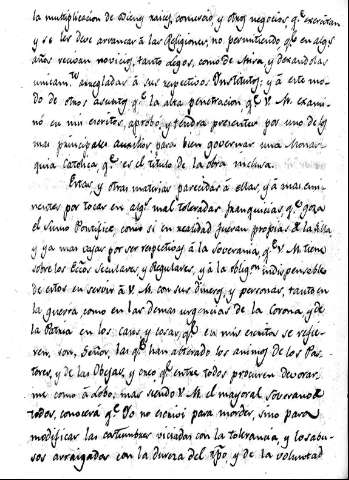 la multiplicacion de Bienes raices, comercio, y otros negocios q.e exercitan
y se les deve arrancar á las Religiones, no permitiendo q.e en alg.s
años recivan novicios, tanto Legos, como de Misa, y dexandolas
unicam.te arregladas á sus respectivos Institutos; y á este mo-
do de otros asuntos q.e la alta penetracion q.e V. M. exami-
nó en mis escritos, aprobó, y tendrá presentes por uno de los
mas principales auxilios para bien governar una Monar-
quia Catolica, q.e es el titulo de la obra inclusa.
Estas, y otras materias parecidas á ellas, yá mas emi-
nentes por tocar en alg.s mal toleradas franquicias q.e goza
el Sumo Pontifice, como si en realidad fueran propias de la Silla
y ya mas vajas por ser respectivas á la Soverania, q.e V. M. tiene
sobre los Ecc.os Seculares, y Regulares, y á la oblig.on indispensable
de estos en servir á V. M. con sus dineros, y personas, tanto en
la guerra, como en las demas urgencias de la Corona, y de
la Patria en los casos y cosas, q.e en mis escritos se refie-
ren, son, Señor, las q.e han alterado los animos de los Pas-
tores, y de las Obejas, y creo q.e entre todos procuren devorar-
me como á Lobo, mas siendo V. M. el mayoral Soverano de
todos, conocerá q.e Yo no escrivi para morder, sino para
modificar las costumbres viciadas con la tolerancia, y los abu-
sos arraigados con la dureza del tpo, y de la voluntad